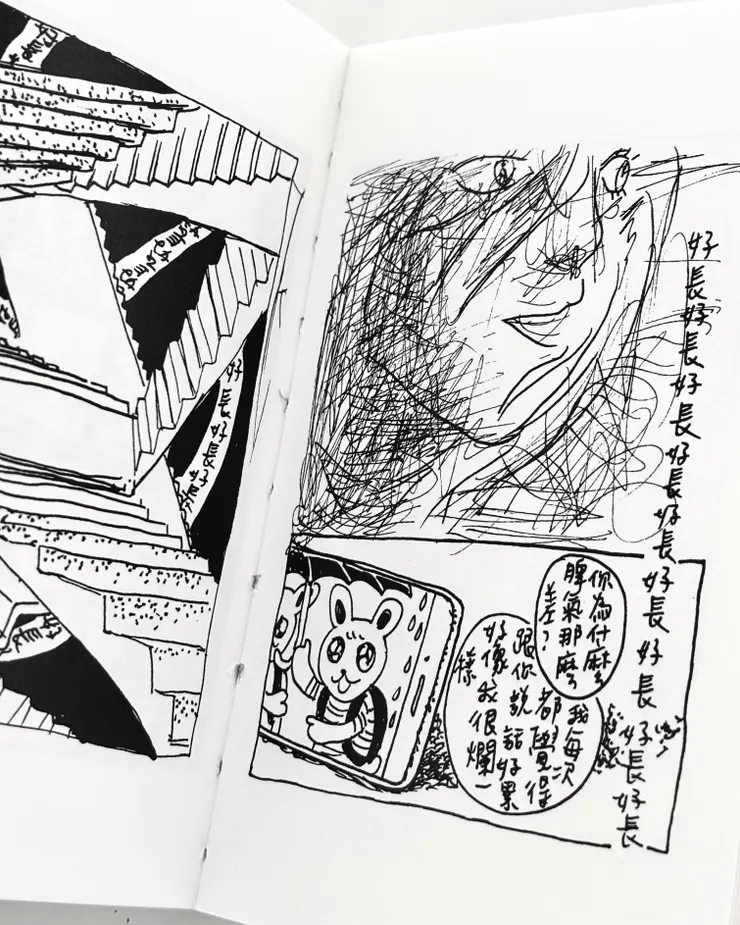 好長好長好長好長好長好長好長好長好長
你為什麼
脾氣那麼
差？
我每次
都覺得
跟你說話好累
好像我很爛一
樣
好長好長好長